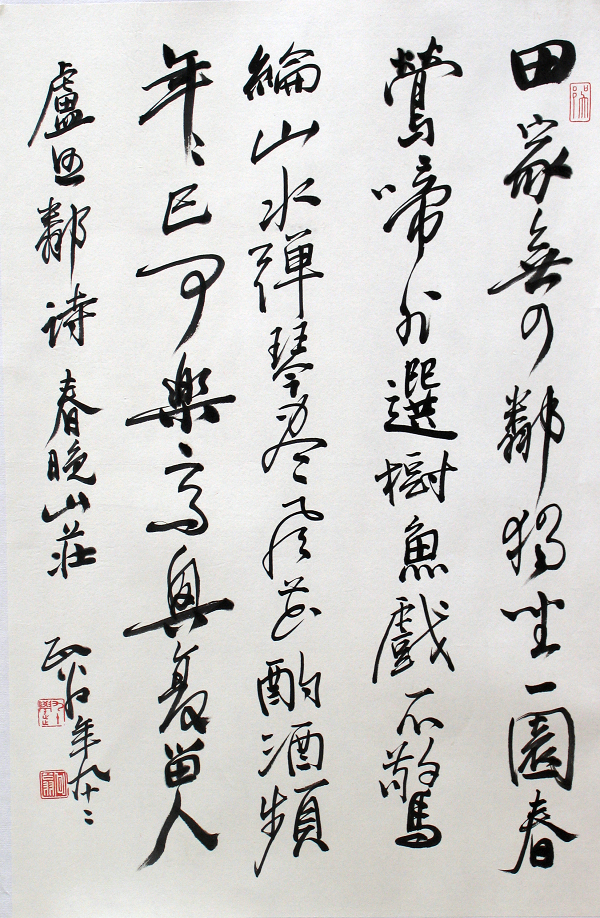 田家無四鄰獨坐一園春
鶯啼非選樹魚戲不驚
綸山水弾琴尽風花酌酒頻
年〻已可楽高興復留人
盧照鄰诗春晚山莊 年九十二